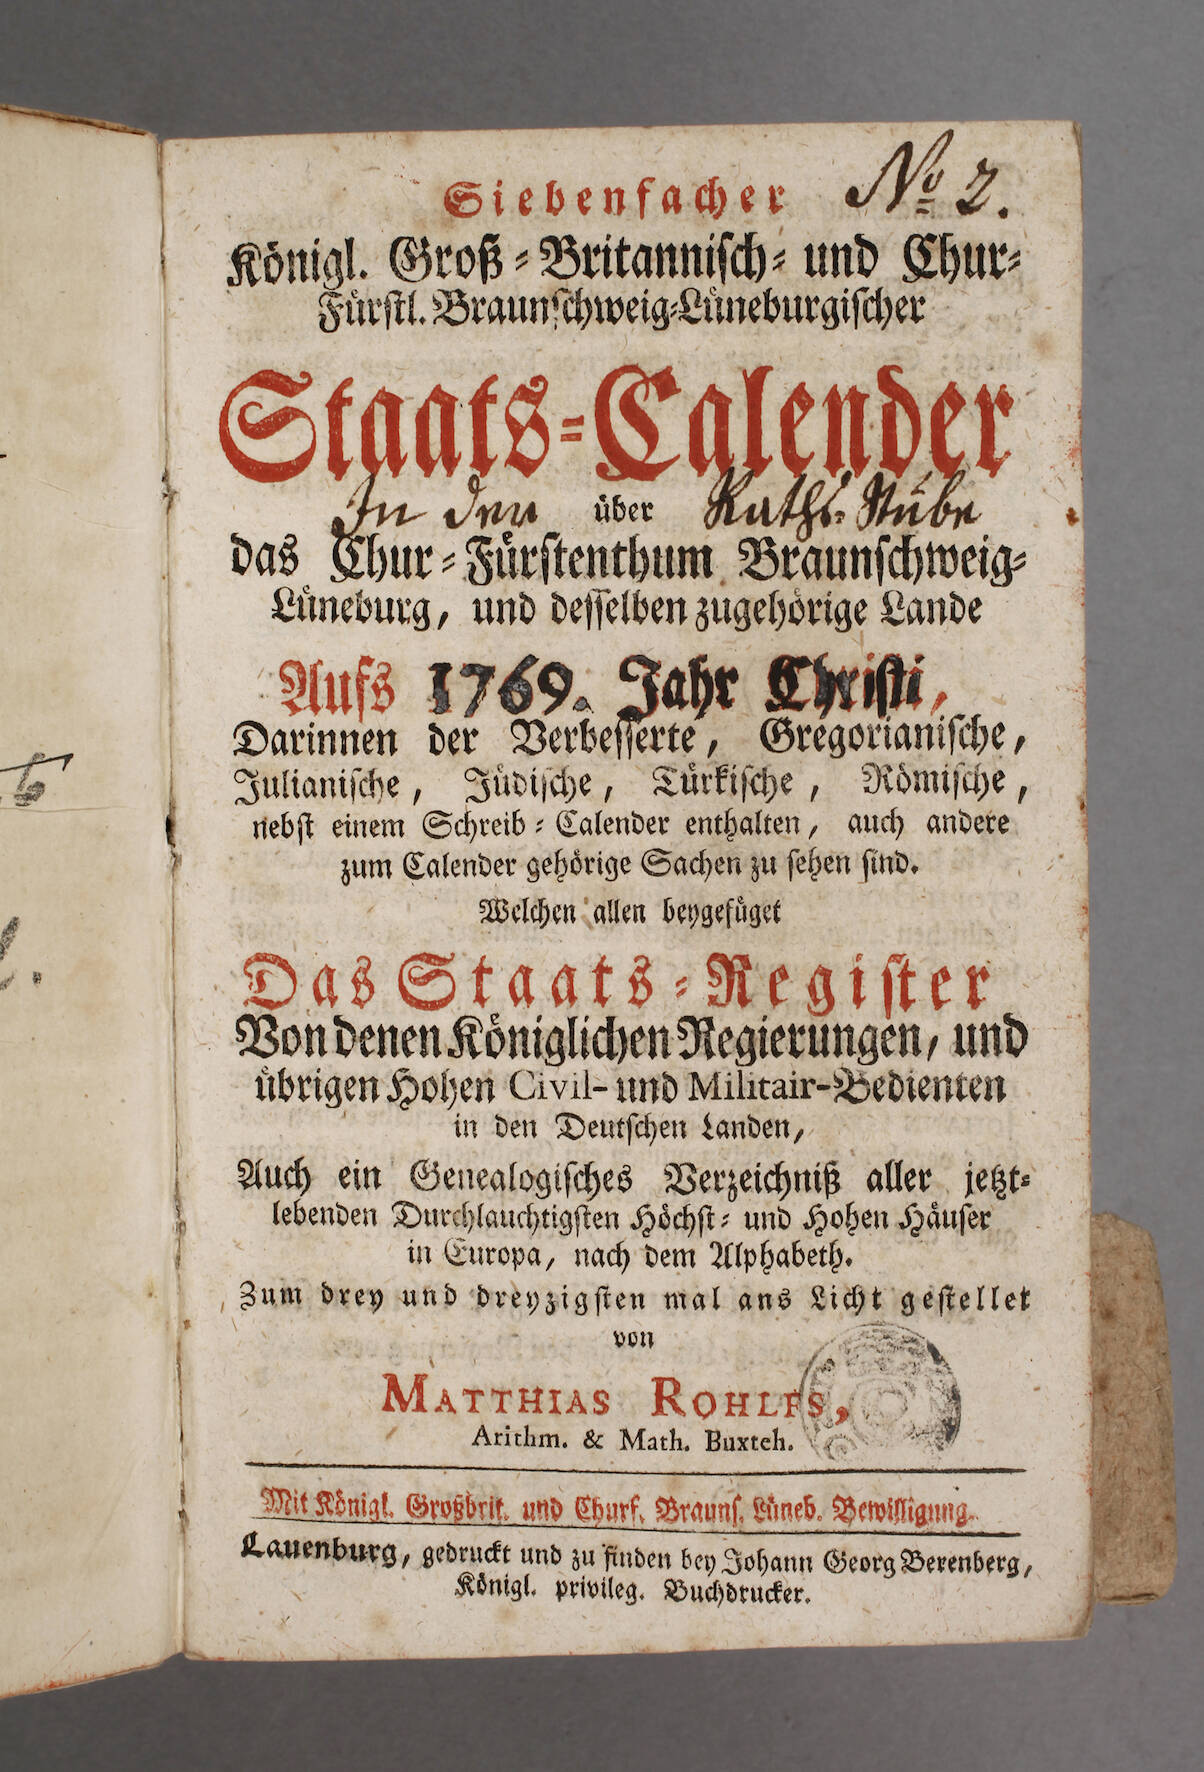 Siebenfacher No 2.
Königl. Groß-Britannisch- und Chur-
Fürstl. Braunschweig-Lüneburgischer
Staats-Calender
In der über Raths-Stube
das Chur-Fürstenthum Braunschweig-
Lüneburg, und desselben zugehörige Lande
Aufs 1769. Jahr Christi,
Darinnen der Verbesserte, Gregorianische,
Julianische, Jüdische, Türkische, Römische,
nebst einem Schreib-Calender enthalten, auch andere
zum Calender gehörige Sachen zu sehen sind.
Welchen allen beygefüget
Das Staats-Register
Von denen Königlichen Regierungen, und
übrigen Hohen Civil- und Militair-Bedienten
in den Deutschen Landen,
Auch ein Genealogisches Verzeichniß aller jetzt-
lebenden Durchlauchtigsten Höchst- und Hohen Häuser
in Europa, nach dem Alphabeth.
Zum drey und dreyzigsten mal ans Licht gestellet
von
MATTHIAS ROHLFS,
Arithm. & Math. Buxteh.
Mit Königl. Großbrit. und Churf. Brauns. Lüneb. Bewilligung.
Lauenburg, gedruckt und zu finden bey Johann Georg Berenberg,
Königl. privileg. Buchdrucker.